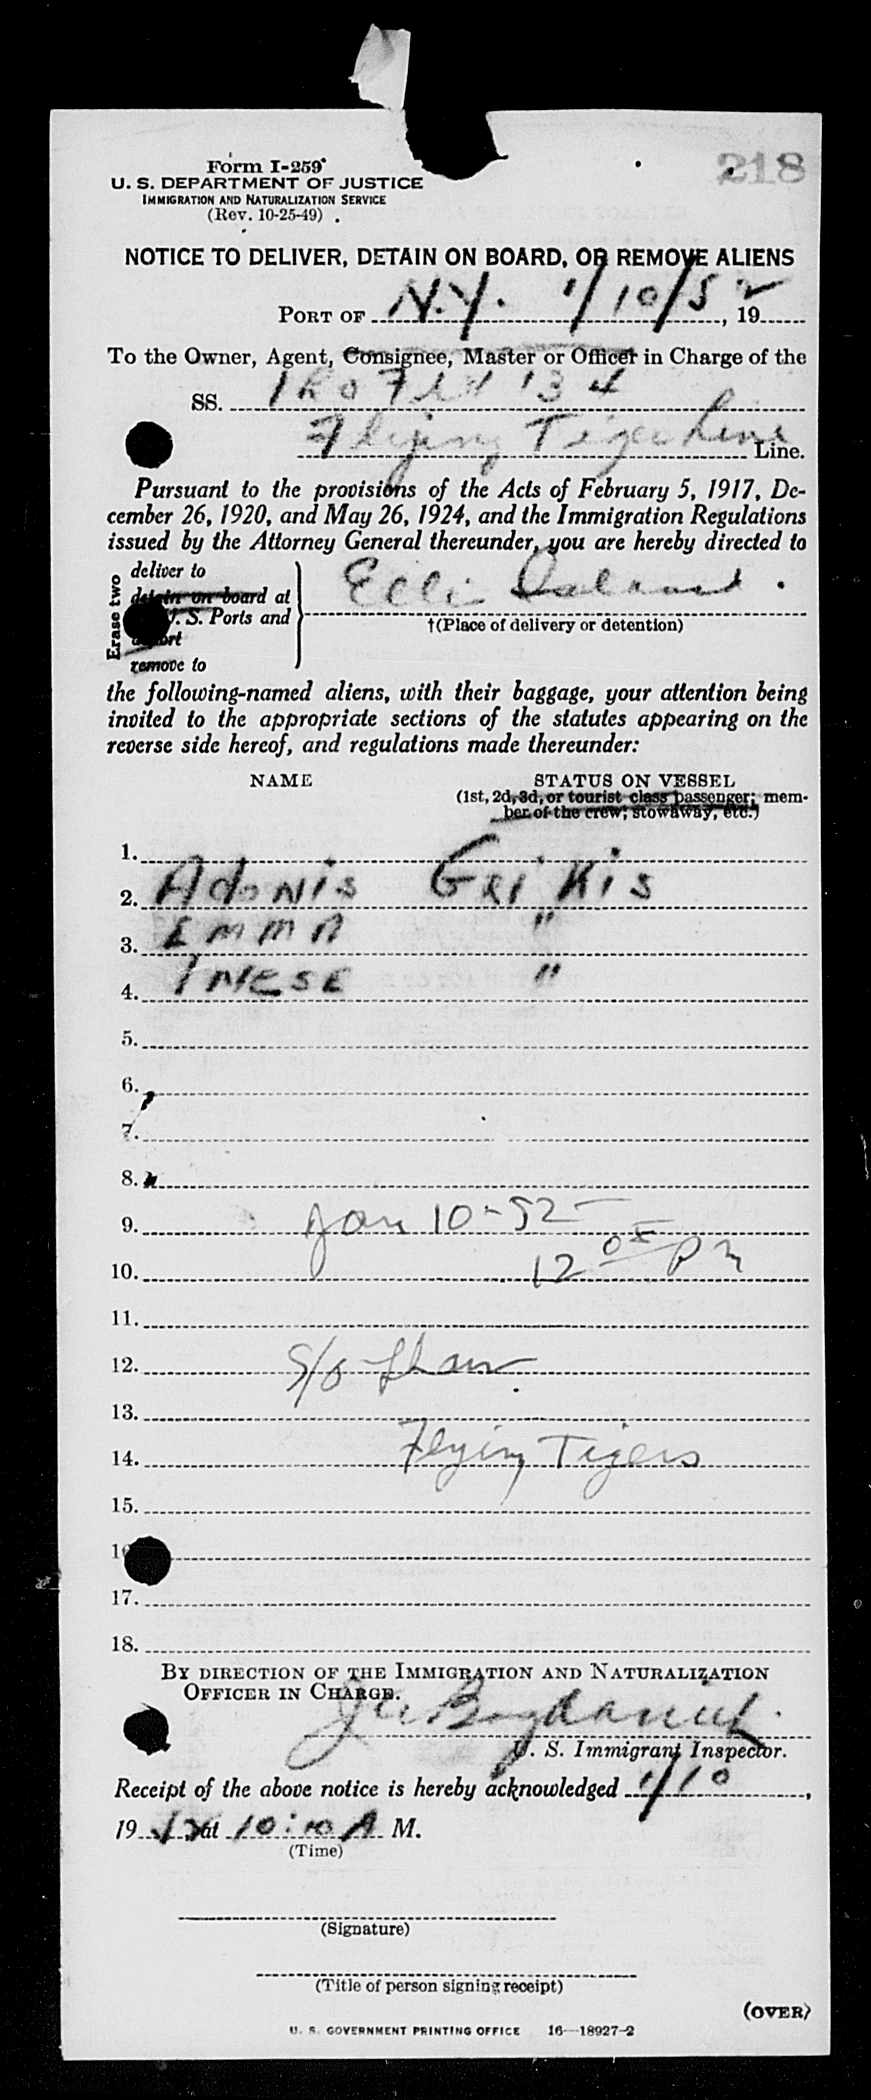 218
Form I-259
U. S. DEPARTMENT OF JUSTICE
IMMIGRATION AND NATURALIZATION SERVICE
(Rev. 10-25-49)
NOTICE TO DELIVER, DETAIN ON BOARD, OR REMOVE ALIENS
PORT OF N.Y. 1/10/52, 19
To the Owner, Agent, Consignee, Master or Officer in Charge of the
SS. IRO Flt 134
Flying Tiger Line Line.
Pursuant to the provisions of the Acts of February 5, 1917, De-
cember 26, 1920, and May 26, 1924, and the Immigration Regulations
issued by the Attorney General thereunder, you are hereby directed to
Erase two
deliver to
detain on board at
U. S. Ports and
remove to
Ellis Island.
†(Place of delivery or detention)
the following-named aliens, with their baggage, your attention being
invited to the appropriate sections of the statutes appearing on the
reverse side hereof, and regulations made thereunder:
NAME STATUS ON VESSEL
(1st, 2d, 3d, or tourist class passenger; mem-
ber of the crew; stowaway, etc.)
1.
2. Adonis Grikis
3. EMMA "
4. INESE "
5.
6.
7.
8.
9. Jan 10-52
10. 12 05 PM
11.
12. S/O
13.
14. Flying Tigers
15.
16
17.
18.
BY DIRECTION OF THE IMMIGRATION AND NATURALIZATION
OFFICER IN CHARGE.
U. S. Immigrant Inspector.
Receipt of the above notice is hereby acknowledged 1/10,
19 52 at 10:10 A M.
(Time)
(Signature)
(Title of person signing receipt)
(OVER)
U. S. GOVERNMENT PRINTING OFFICE 16—18927-2